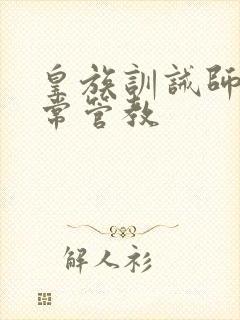 皇族訓誡師
常管教
解人衫